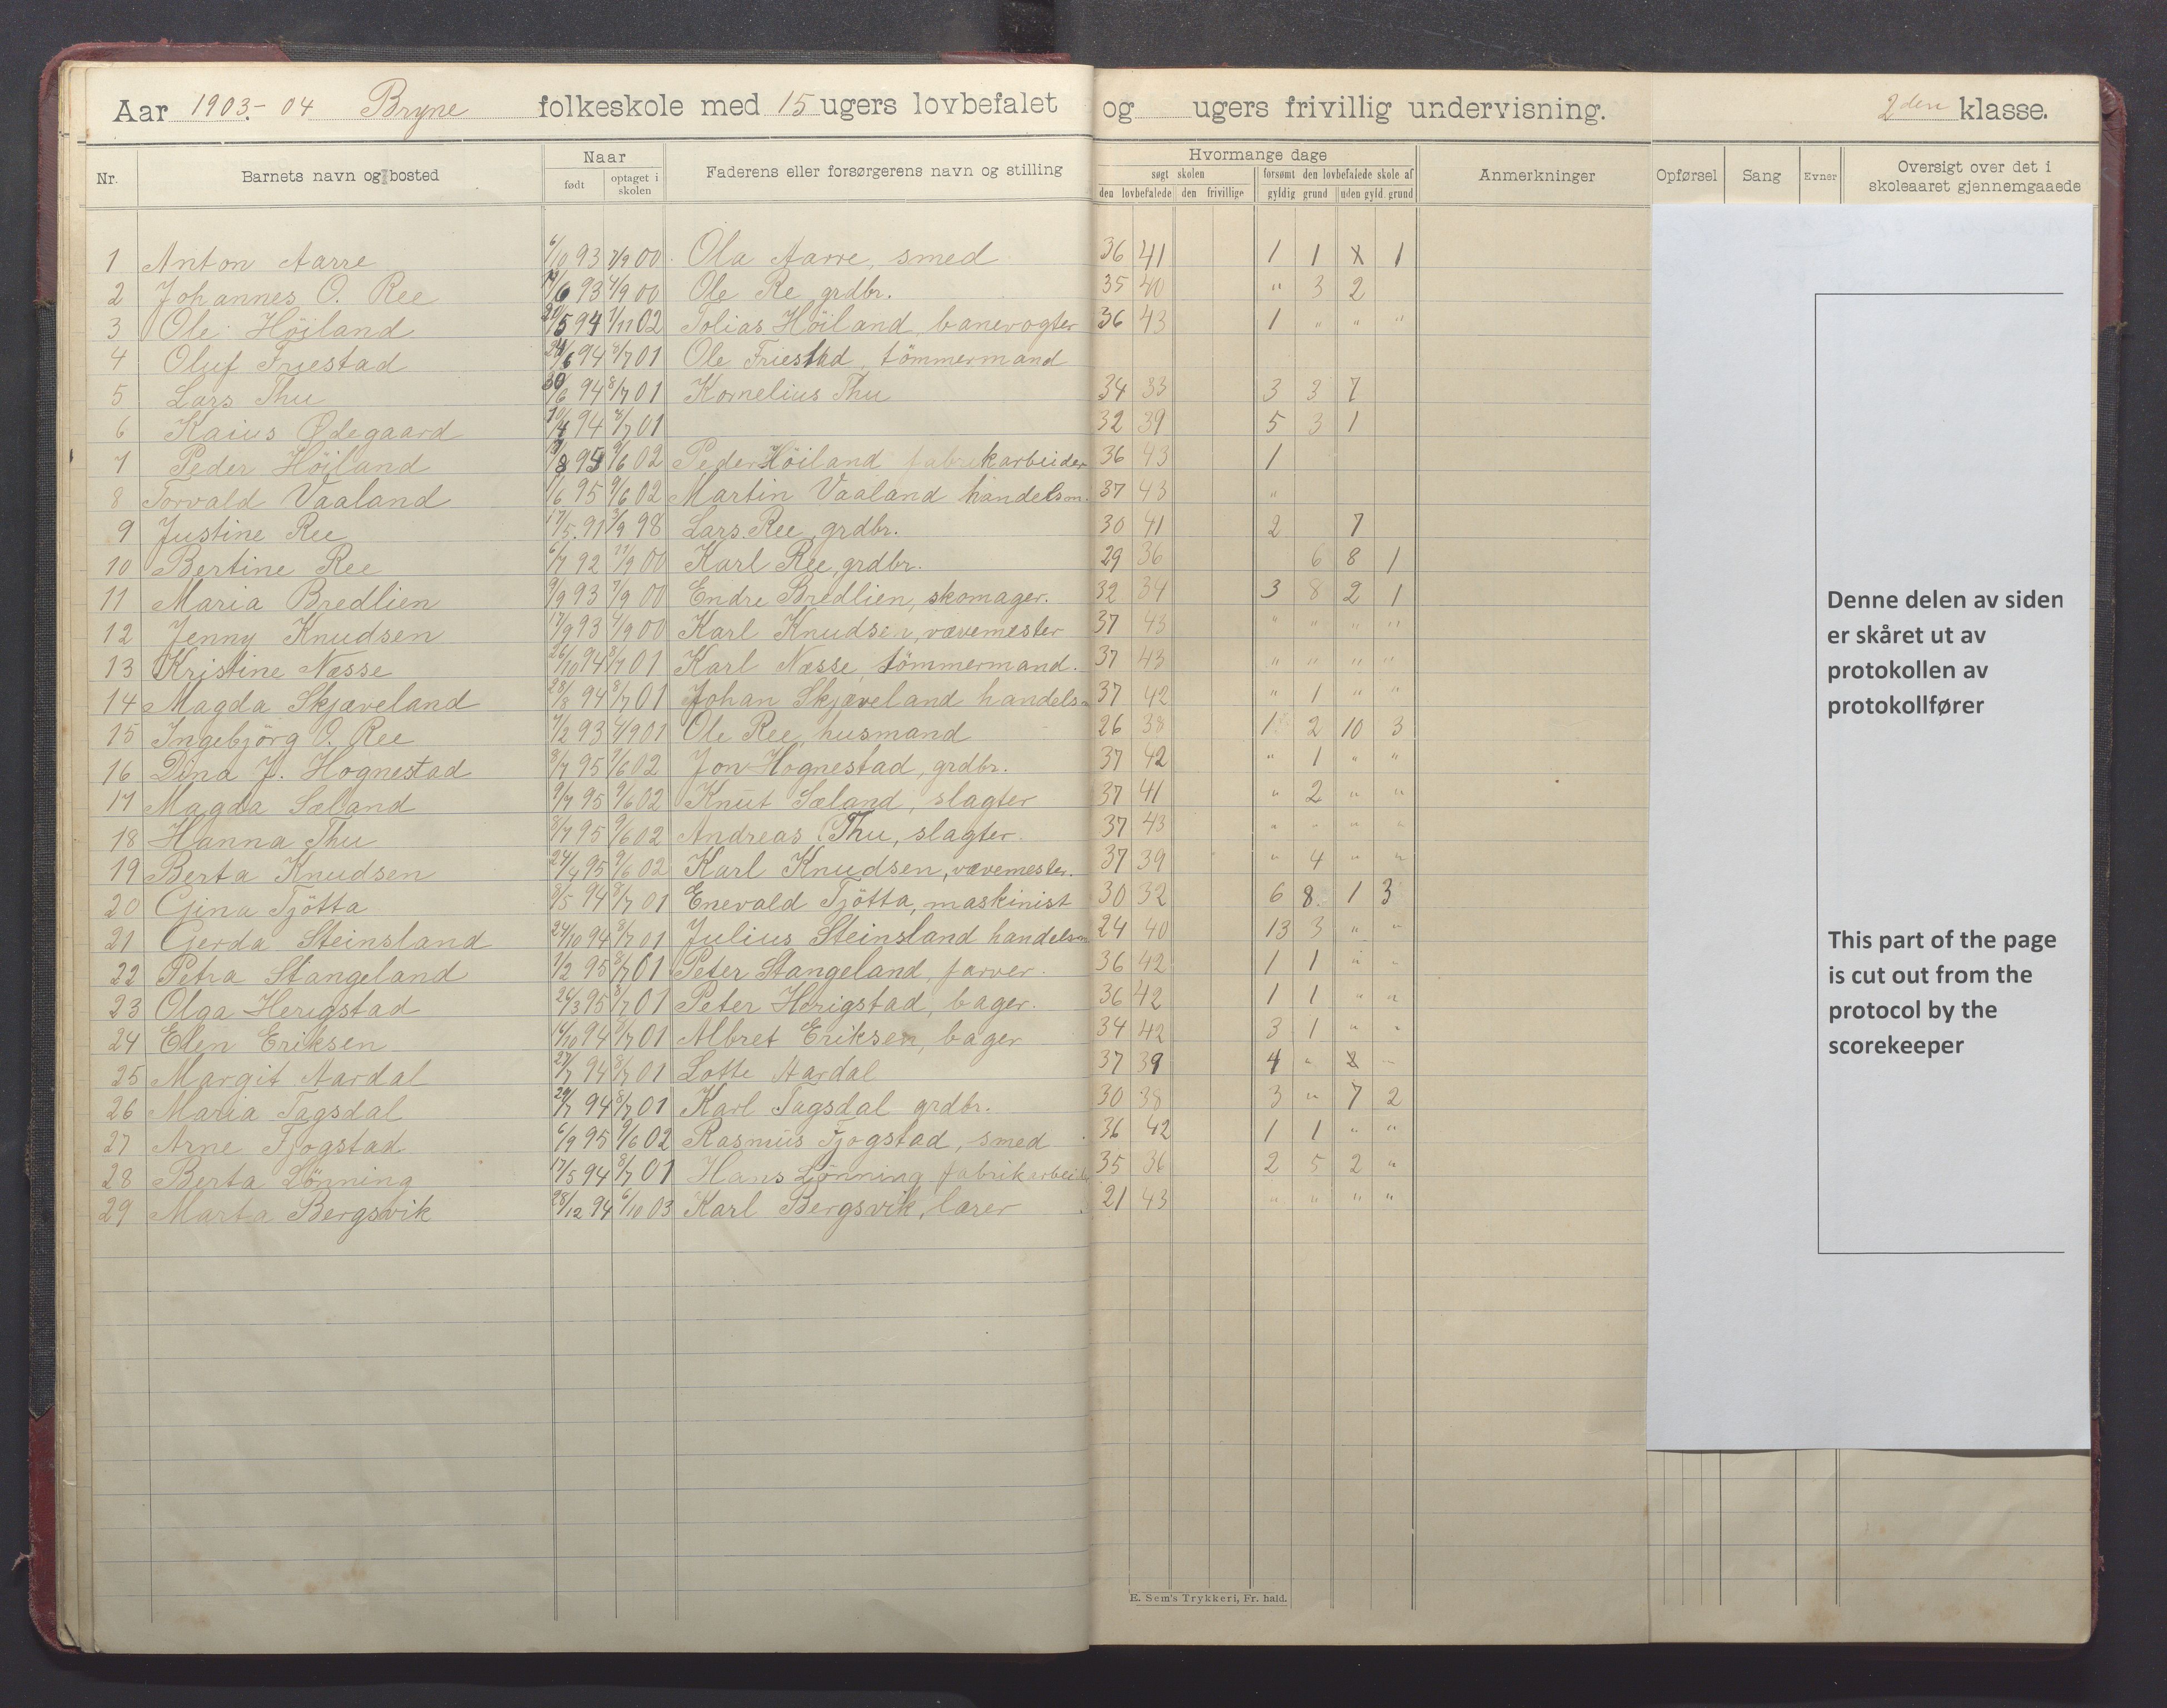 Aar 1903-04 Bryne folkeskole med 15 ugers lovbefalet og ugers frivillig undervisning. 2den klasse.
Nr. Barnets navn og bosted Naar født optaget i skolen Faderens eller forsørgerens navn og stilling Hvormange dage søgt skolen den lovbefalede den frivillige forsømt den lovbefalede skole af gyldig grund uden gyld. grund Anmerkninger Opførsel Sang Evner Oversigt over det i skoleaaret gjennemgaaede
1 Anton Aarre 6/10 93 7/9 00 Ola Aarre, smed 36 41 1 1 1
2 Johannes O. Ree 93 7/9 00 Ole Re grdbr. 35 40 " 3 2
3 Ole Höiland 20/5 94 1/11 02 Tolias Höiland, banevogter 36 43 1 " " "
4 Oluf Friestad 24/6 94 8/7 01 Ole Friestad, tömmermand
5 Lars Thu 30/6 94 8/7 01 Kornelius Thu 34 33 3 3 7
6 Kaius Ødegaard 94 8/7 01 32 39 5 3 1
7 Peder Höiland 9/6 02 Peder Höiland fabrikarbeider 36 43 1
8 Torvald Vaaland 1/6 95 9/6 02 Martin Vaaland handelsm. 37 43 "
9 Justine Ree 17/5 91 3/9 98 Lars Ree, grdbr. 30 41 2 7
10 Bertine Ree 6/7 92 11/9 00 Karl Ree, grdbr. 29 36 6 8 1
11 Maria Bredlien 9/9 93 7/9 00 Endre Bredlien, skomager. 32 34 3 8 2 1
12 Jenny Knudsen 17/9 93 7/9 00 Karl Knudsen, vævemester 37 43 " " " "
13 Kristine Næsse 26/10 94 8/7 01 Karl Næsse, tömmermand. 37 43 " " " "
14 Magda Skjæveland 28/8 94 8/7 01 Johan Skjæveland handels 37 42 " 1 " "
15 Ingebjörg O. Ree 7/2 93 4/9 01 Ole Ree, husmand 26 38 1 2 10 3
16 Dina J. Hognestad 8/7 95 9/6 02 Jon Hognestad, grdbr. 37 42 " 1 " "
17 Magda Sæland 9/7 95 9/6 02 Knut Sæland, slagter 37 41 " 2 " "
18 Hanna Thu 3/7 95 9/6 02 Andreas Thu, slagter. 37 43 " " " "
19 Berta Knudsen 24/4 95 9/6 02 Karl Knudsen, vævemester. 37 39 " 4 " "
20 Gina Tjötta 8/5 94 8/7 01 Enevald Tjötta, maskinist 30 32 6 8 1 3
21 Gerda Steinsland 24/10 94 8/7 01 Julius Steinsland handelsm 24 40 13 3 " "
22 Petra Stangeland 1/2 95 8/7 01 Peter Stangeland, farver. 36 42 1 1 " "
23 Olga Herigstad 26/3 95 8/7 01 Peter Herigstad, bager. 36 42 1 1 " "
24 Elen Eriksen 16/10 94 8/7 01 Albret Eriksen, bager 34 42 3 1 " "
25 Margit Aardal 27/7 94 8/7 01 Lotte Aardal 37 39 4 " "
26 Maria Tagsdal 29/7 94 8/7 01 Karl Tagsdal grdbr. 30 38 3 " 7 2
27 Arne Tjogstad 6/9 95 9/6 02 Rasmus Tjogstad, smed 36 42 1 1 " "
28 Berta Lönning 17/5 94 8/7 01 Hans Lönning fabrikarbeider 35 36 2 5 2 "
29 Marta Bergsvik 28/12 94 6/10 03 Karl Bergsvik, lærer 21 43 " " " "
Denne delen av siden
er skåret ut av
protokollen av
protokollfører
This part of the page
is cut out from the
protocol by the
scorekeeper
E. Sem's Trykkeri, Fr. hald.